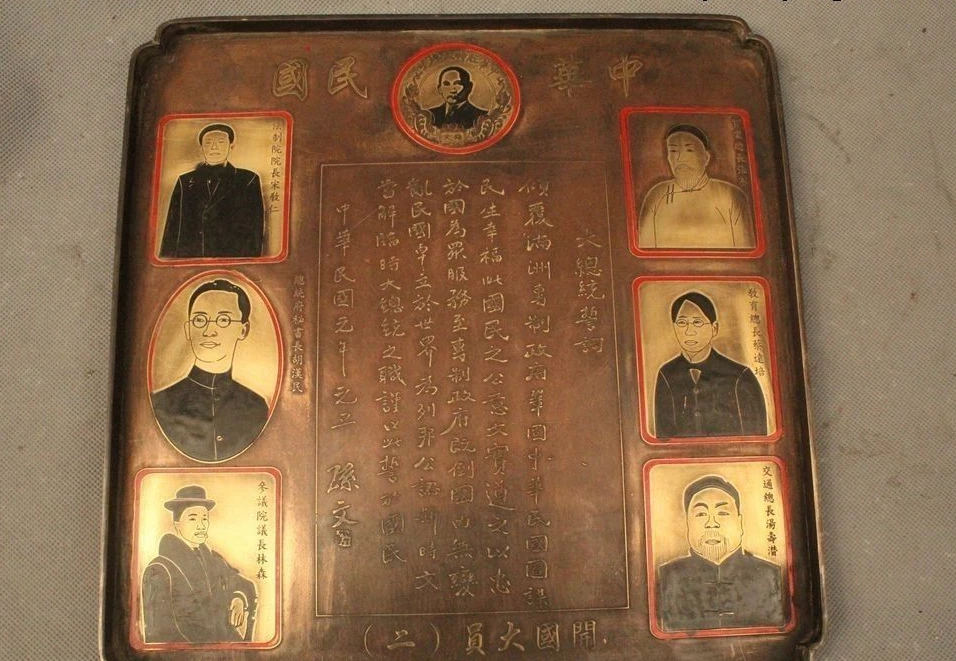 中華民國
實業總長張謇
教育總長蔡達培
交通總長湯壽潛
大總統誓詞
傾覆滿洲專制政府鞏固中華民國圖謀
民生幸福此國民之公意文實遵之以忠
於國為眾服務至專制政府既倒國內無變
亂民國卓立於世界為列邦公認斯時文
當解臨時大總統之職謹以此誓於國民
中華民國元年元旦 孫文
法制院院長宋敎仁
總統府秘書長胡漢民
參議院議長林森
開國大員(二)